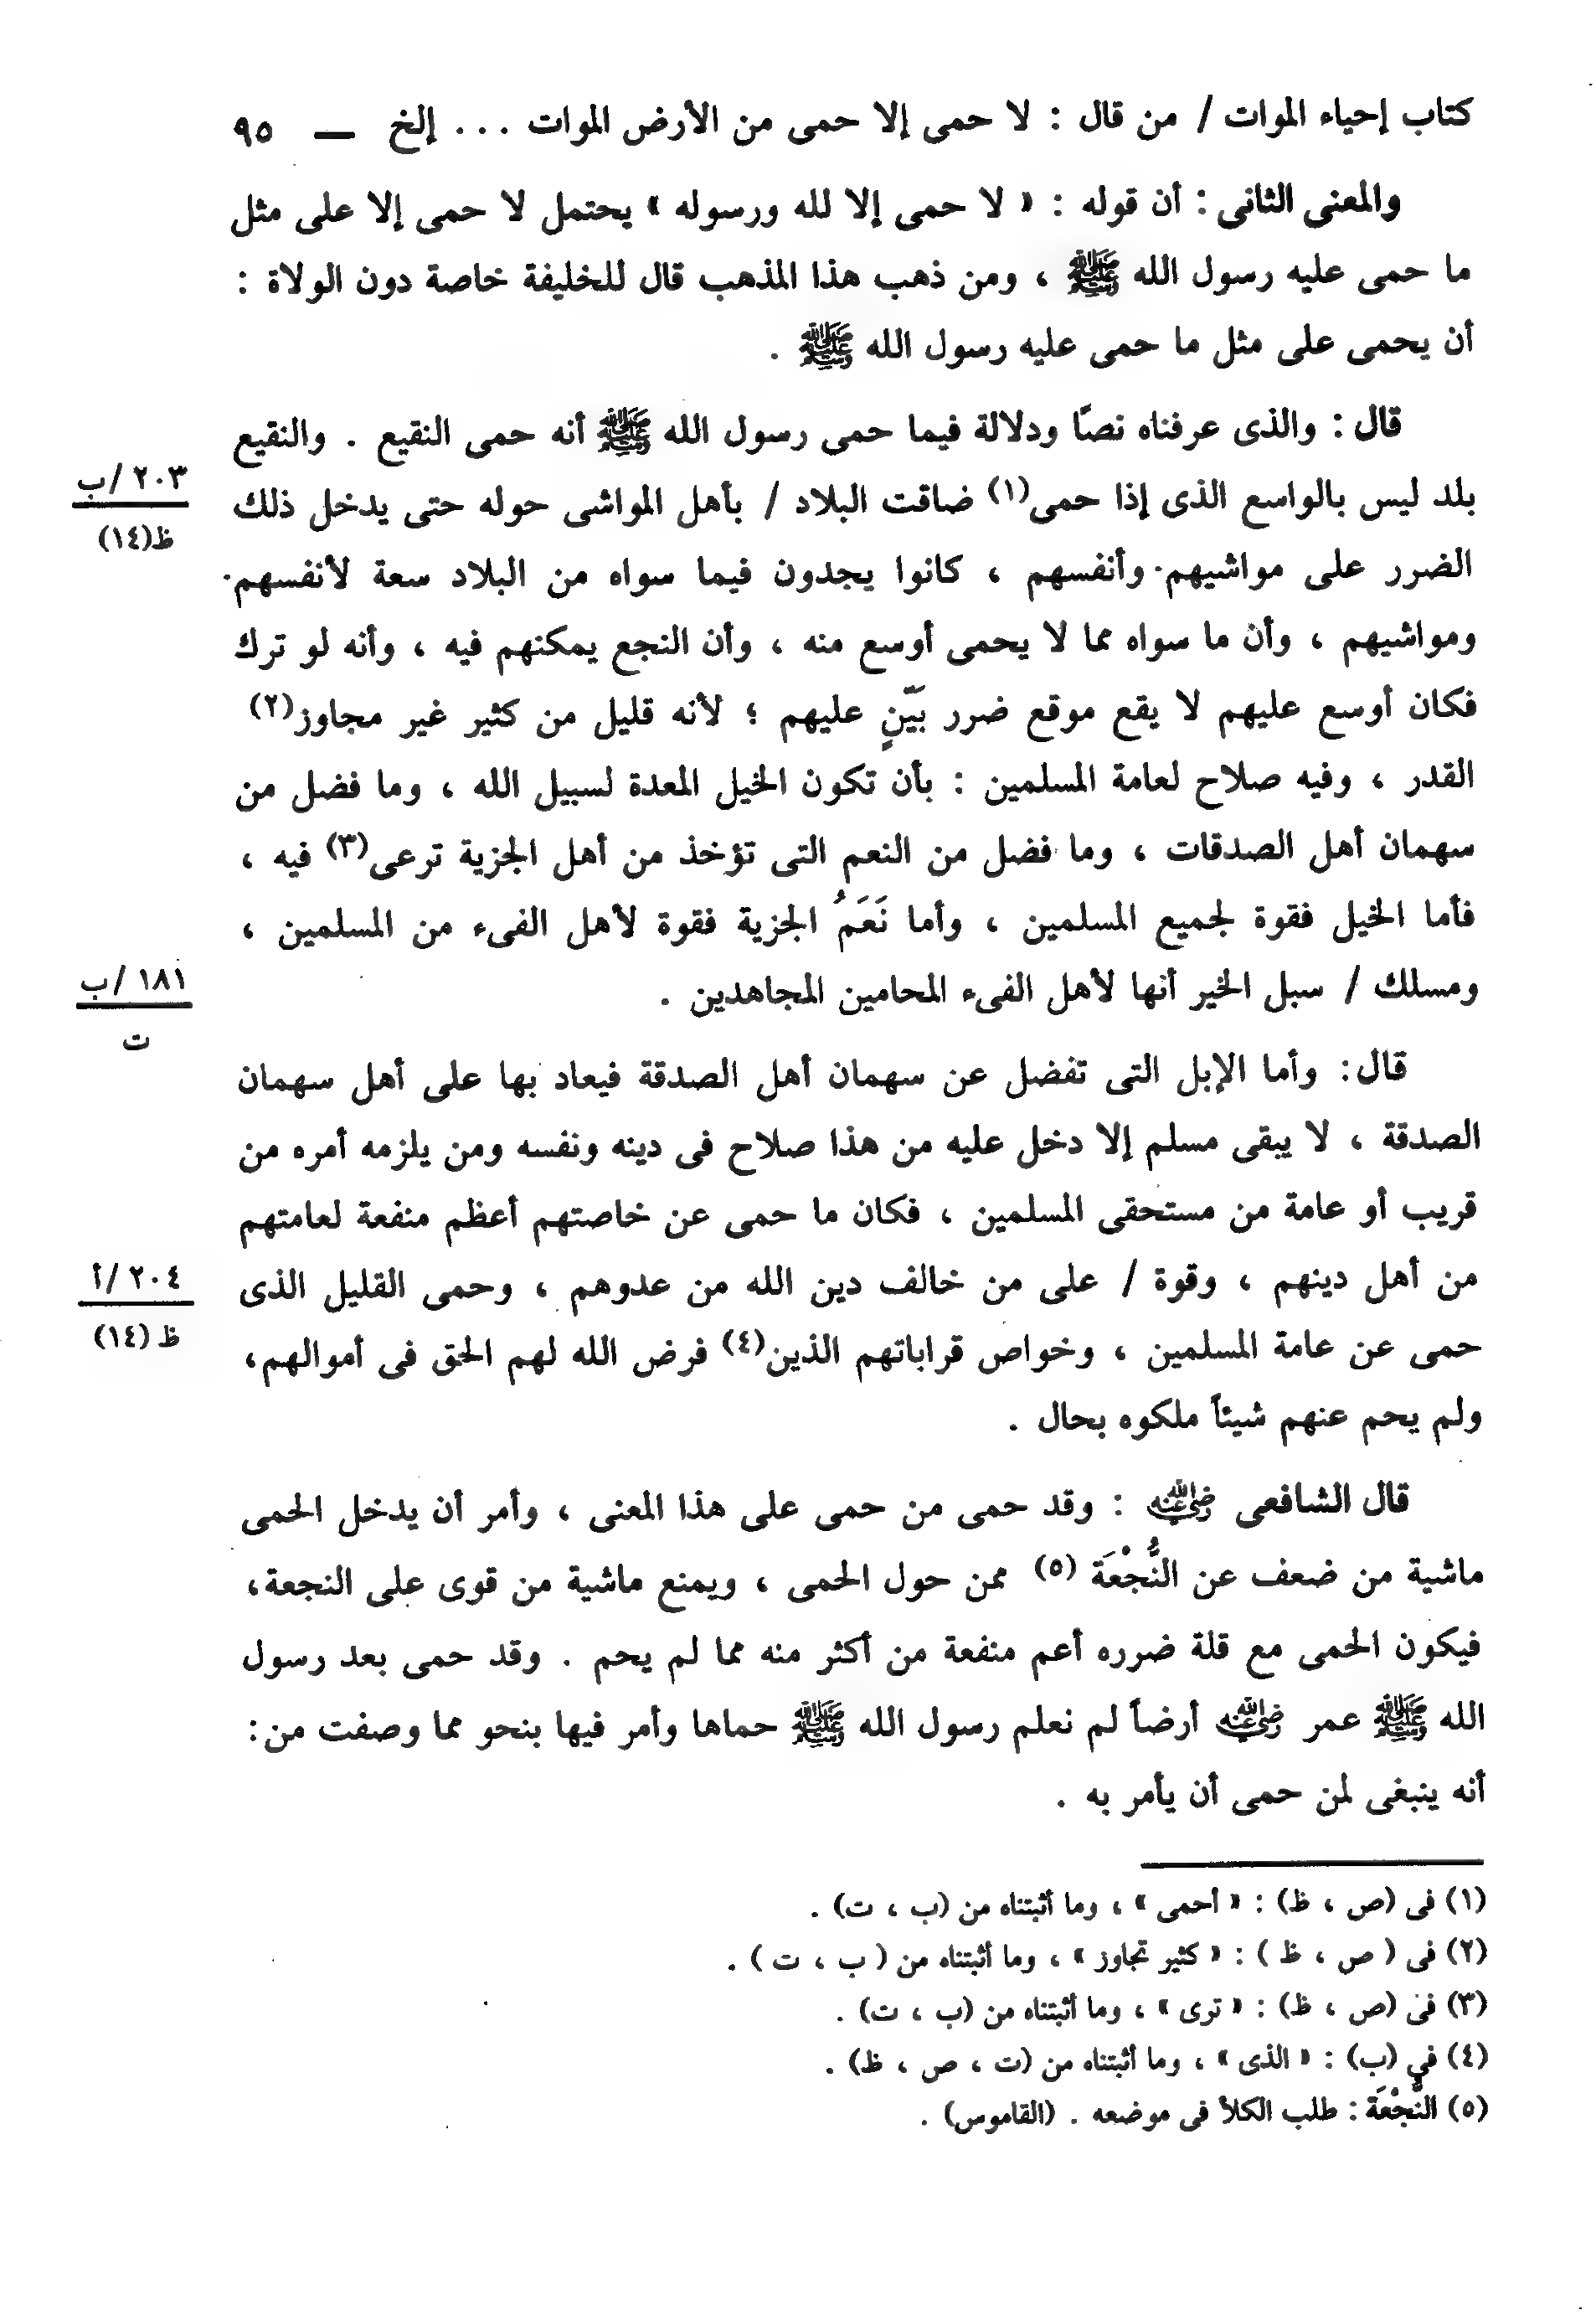 كتاب إحياء الموات / من قال : لا حمى إلا حمى من الأرض الموات . . . إلخ — ٩٥
والمعنى الثانى : أن قوله : « لا حمى إلا لله ورسوله » يحتمل لا حمى إلا على مثل
ما حمى عليه رسول الله ﷺ ، ومن ذهب هذا المذهب قال للخليفة خاصة دون الولاة :
أن يحمى على مثل ما حمى عليه رسول الله ﷺ .
قال : والذى عرفناه نصّا ودلالة فيما حمى رسول الله ﷺ أنه حمى النقيع . والنقيع
٢٠٣ /ب
بلد ليس بالواسع الذى إذا حمى(١) ضاقت البلاد / بأهل المواشى حوله حتى يدخل ذلك
ظ(١٤)
الضرر على مواشيهم وأنفسهم ، كانوا يجدون فيما سواه من البلاد سعة لأنفسهم
ومواشيهم ، وأن ما سواه مما لا يحمى أوسع منه ، وأن النجع يمكنهم فيه ، وأنه لو ترك
فكان أوسع عليهم لا يقع موقع ضرر بَيّنٍ عليهم ؛ لأنه قليل من كثير غير مجاوز(٢)
القدر ، وفيه صلاح لعامة المسلمين : بأن تكون الخيل المعدة لسبيل الله ، وما فضل من
سهمان أهل الصدقات ، وما فضل من النعم التى تؤخذ من أهل الجزية ترعى(٣) فيه ،
فأما الخيل فقوة لجميع المسلمين ، وأما نَعَمُ الجزية فقوة لأهل الفىء من المسلمين ،
١٨١ /ب
ومسلك / سبل الخير أنها لأهل الفىء المحامين المجاهدين .
ت
قال: وأما الإبل التى تفضل عن سهمان أهل الصدقة فيعاد بها على أهل سهمان
الصدقة ، لا يبقى مسلم إلا دخل عليه من هذا صلاح فى دينه ونفسه ومن يلزمه أمره من
قريب أو عامة من مستحقى المسلمين ، فكان ما حمى عن خاصتهم أعظم منفعة لعامتهم
٢٠٤ /أ
من أهل دينهم ، وقوة / على من خالف دين الله من عدوهم ، وحمى القليل الذى
ظ (١٤)
حمى عن عامة المسلمين ، وخواص قراباتهم الذين(٤) فرض الله لهم الحق فى أموالهم،
ولم يحم عنهم شيئاً ملكوه بحال .
قال الشافعى رضي الله عنه : وقد حمى من حمى على هذا المعنى ، وأمر أن يدخل الحمى
ماشية من ضعف عن النُّجْعَة (٥) ممن حول الحمى ، ويمنع ماشية من قوى على النجعة،
فيكون الحمى مع قلة ضرره أعم منفعة من أكثر منه مما لم يحم . وقد حمى بعد رسول
الله ﷺ عمر رضي الله عنه أرضاً لم نعلم رسول الله ﷺ حماها وأمر فيها بنحو مما وصفت من:
أنه ينبغى لمن حمى أن يأمر به .
(١) فى (ص ، ظ) : « أحمى » ، وما أثبتناه من (ب ، ت) .
(٢) فى ( ص ، ظ ) : « كثير تجاوز » ، وما أثبتناه من ( ب ، ت ) .
(٣) فى (ص ، ظ) : « ترى » ، وما أثبتناه من (ب ، ت) .
(٤) في (ب) : « الذى » ، وما أثبتناه من (ت ، ص ، ظ) .
(٥) النُّجْعَة : طلب الكلأ فى موضعه . (القاموس) .